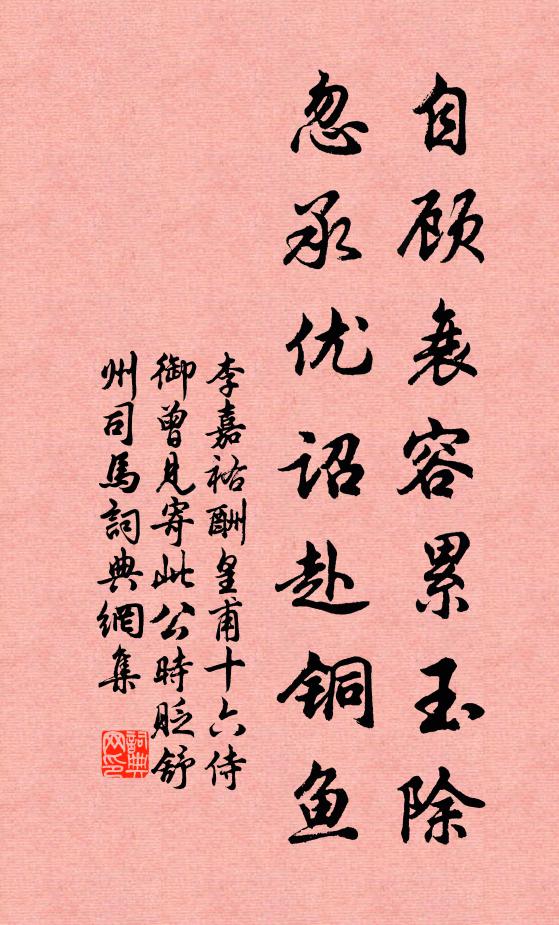 自顾衰容累玉除
忽承优诏赴铜鱼
李嘉祐酬皇甫十六侍
御曾见寄此公時貶舒
州司馬詞典網集
詞典網印